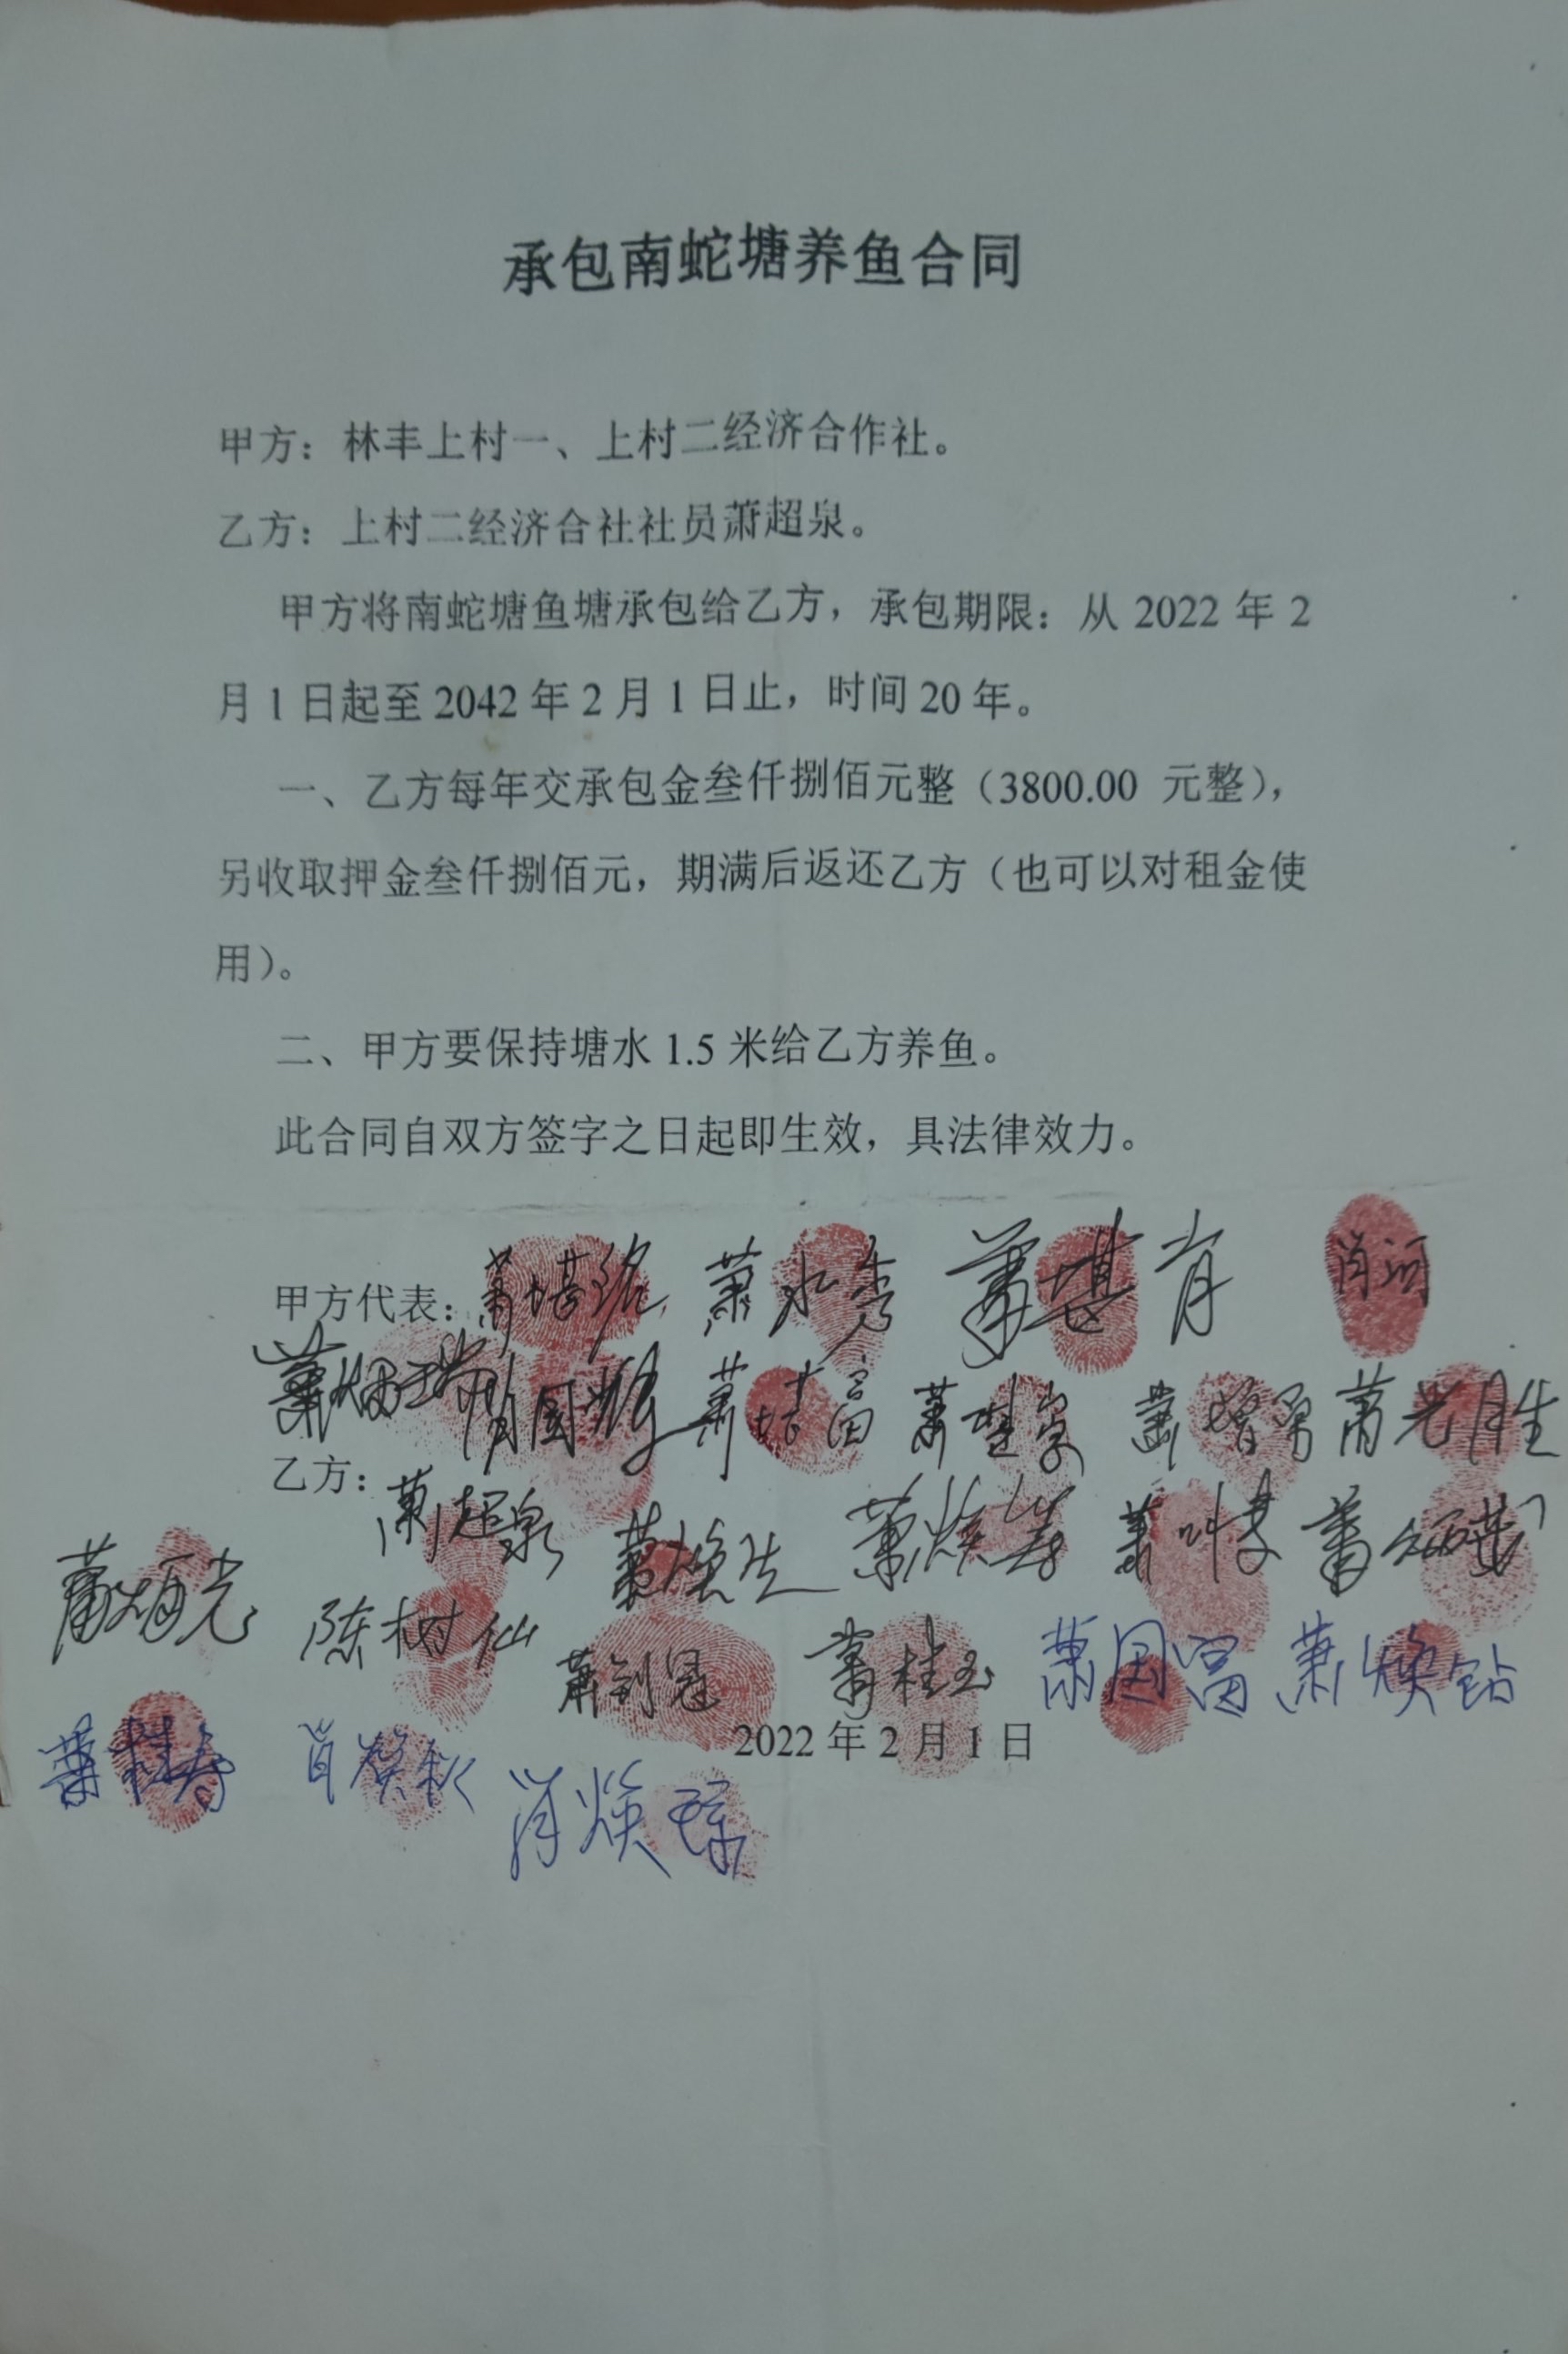 承包南蛇塘养鱼合同
甲方：林丰上村一、上村二经济合作社。
乙方：上村二经济合社社员萧超泉。
甲方将南蛇塘鱼塘承包给乙方，承包期限：从 2022 年 2
月 1 日起至 2042 年 2 月 1 日止，时间 20 年。
一、乙方每年交承包金叁仟捌佰元整（3800.00 元整），
另收取押金叁仟捌佰元，期满后返还乙方（也可以对租金使
用）。
二、甲方要保持塘水 1.5 米给乙方养鱼。
此合同自双方签字之日起即生效，具法律效力。
甲方代表： 萧水秀 肖河
肖国辉 萧光胜
乙方：萧超泉 萧焕生 萧焕寿
萧炳光 陈树仙 萧剑冠 萧桂玉 萧国富 萧焕钻
2022 年 2 月 1 日
萧桂寿
肖焕琼